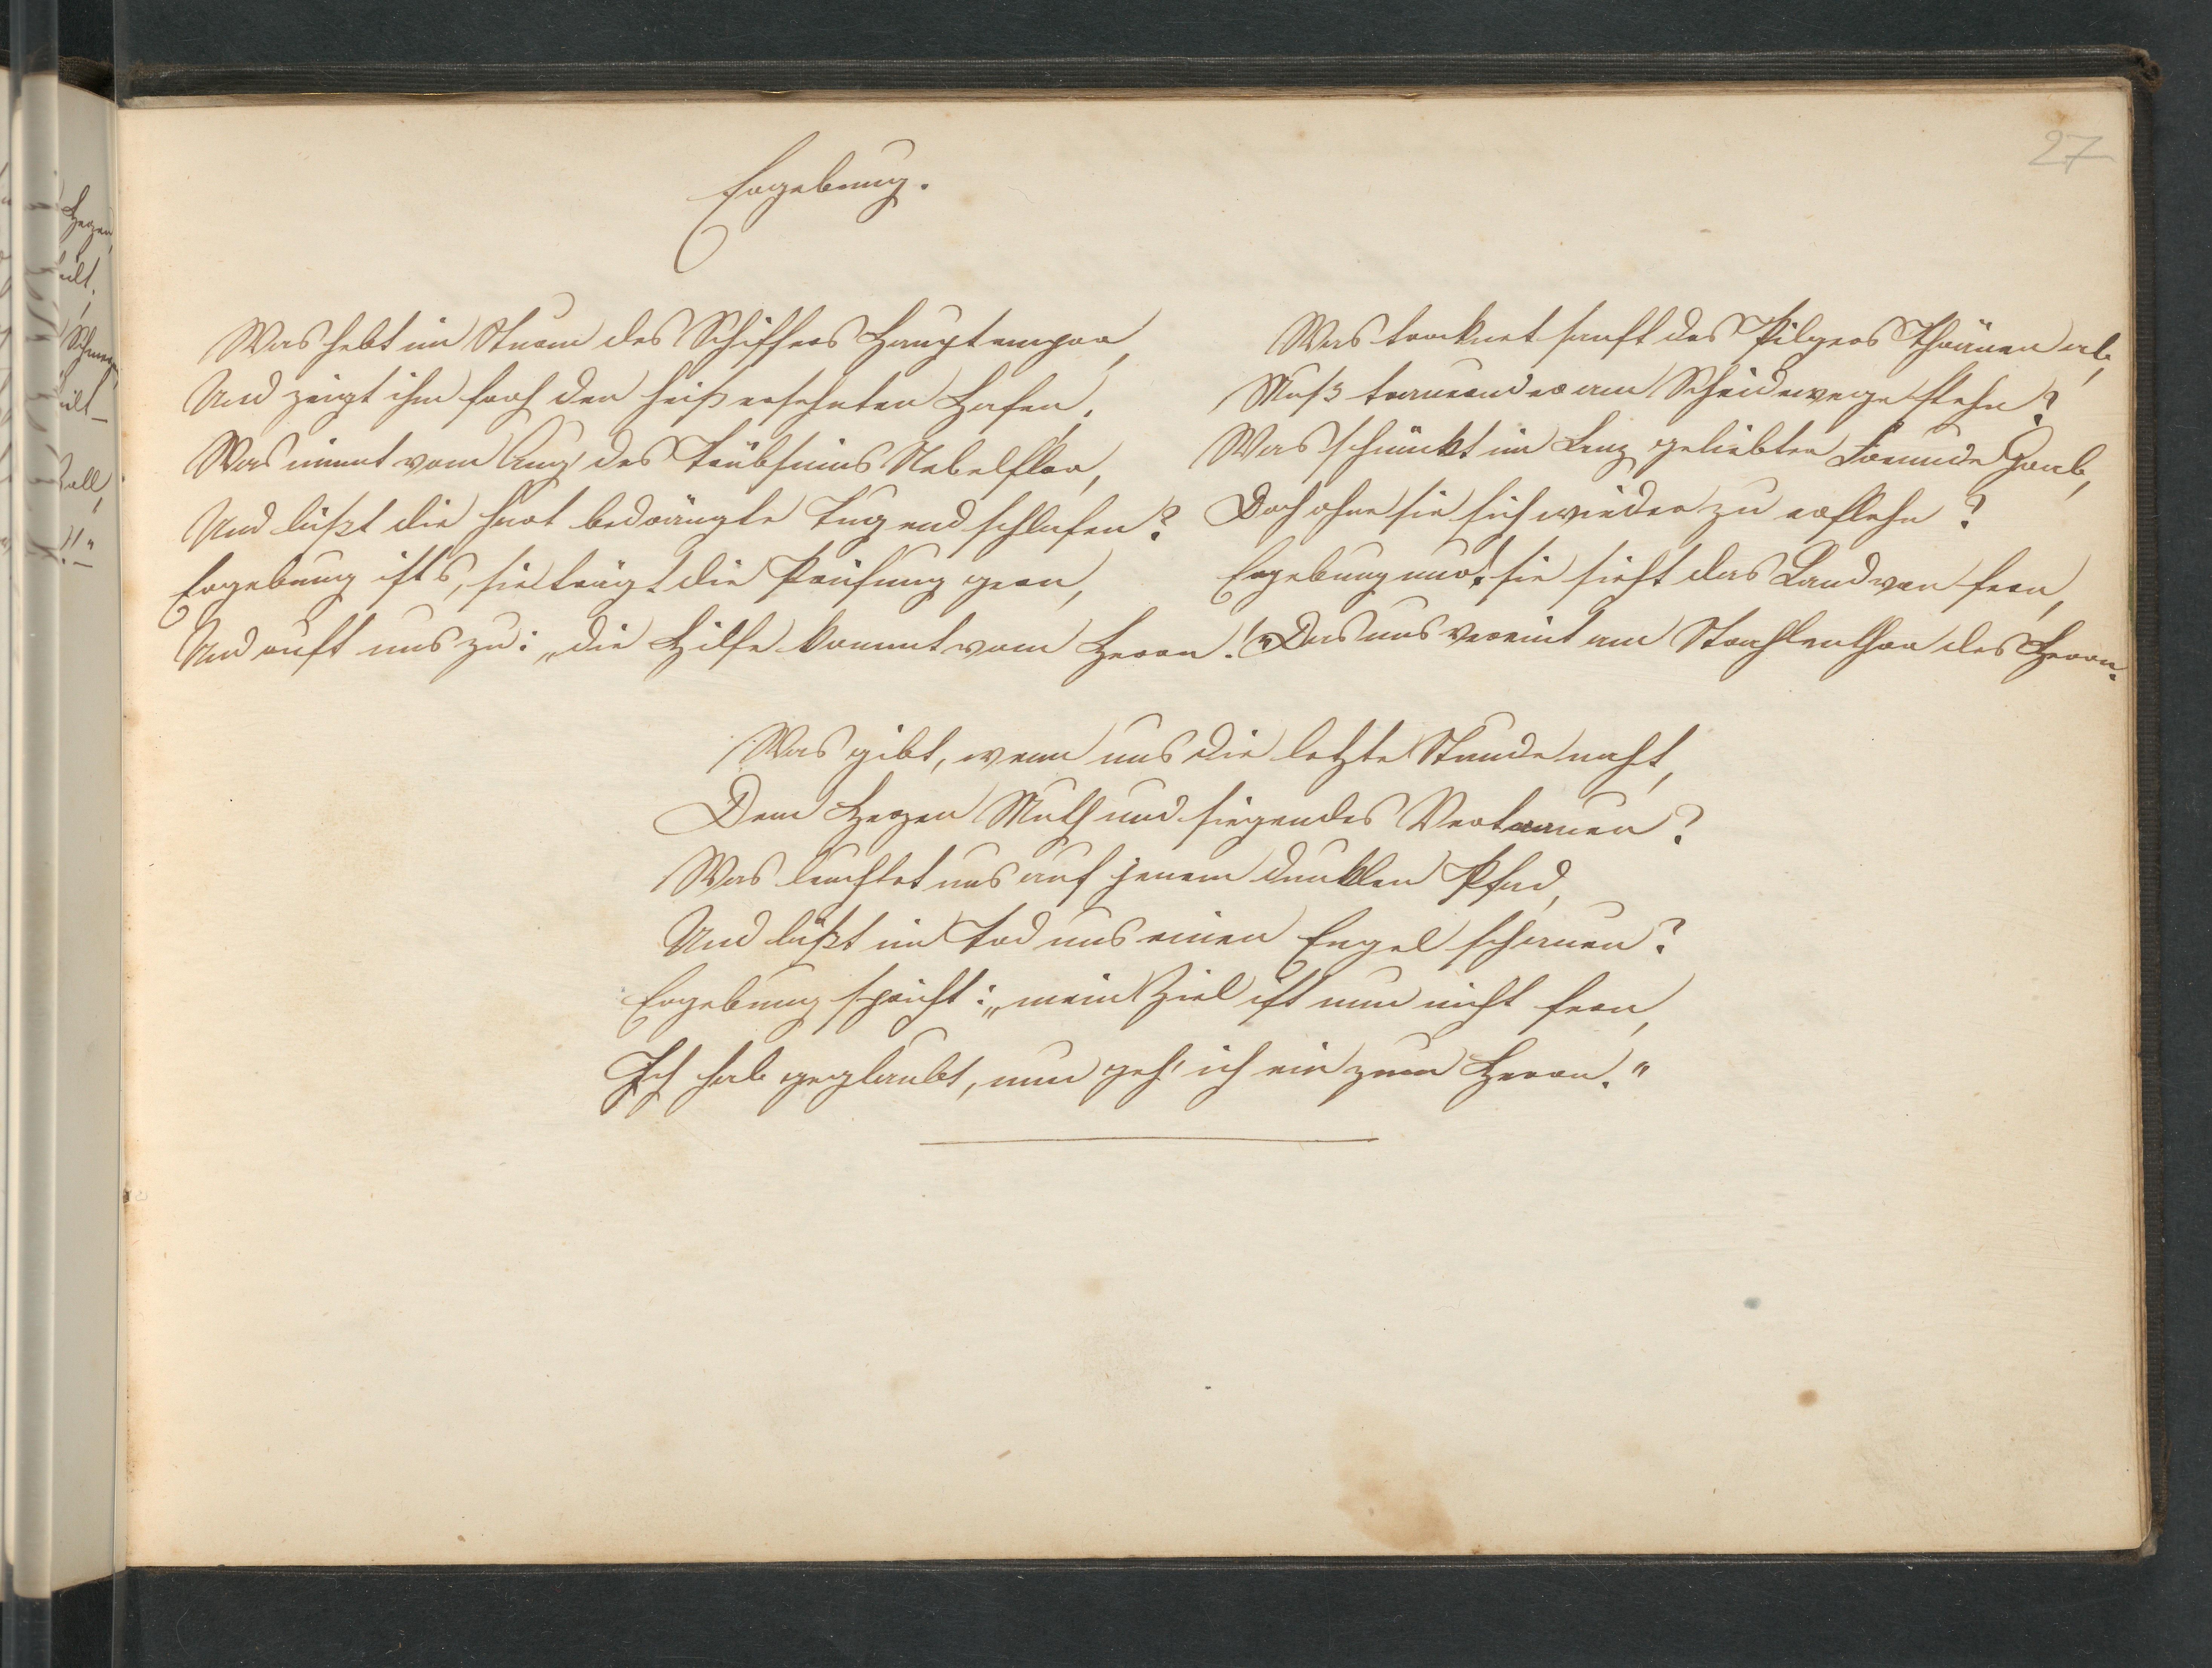 27
Ergebung.
Was hebt im Sturm des Schiffers Haupt empor,
Und zeigt ihm froh den heiß ersehnten Hafen,
Was nimmt vom Aug' des Trübsinns Nebelflor,
Und läßt die hart bedrängte Tugend schlafen?
Ergebung ists, sie trägt die Prüfung gern,
Und ruft uns zu: „die Hilfe kommt vom Herrn!"
Was trocknet sanft des Pilgers Thränen ab,
Muß trauernd er am Scheidewege stehn?
Was schmückt im Lenz geliebter Freunde Grab,
Doch ohne sie sich wieder zu erflehn?
Ergebung nur! sie sieht das Land von fern,
Das uns vereint am Strahlenthor des Herrn.
Was gibt, wenn uns die letzte Stunde naht,
Dem Herzen Muth und siegendes Vertrauen?
Was leuchtet uns auf jenem dunklen Pfad,
Und läßt im Tod uns einen Engel schauen?
Ergebung spricht: „mein Ziel ist nun nicht fern,
Ich hab geglaubt, nun geh' ich ein zum Herrn."